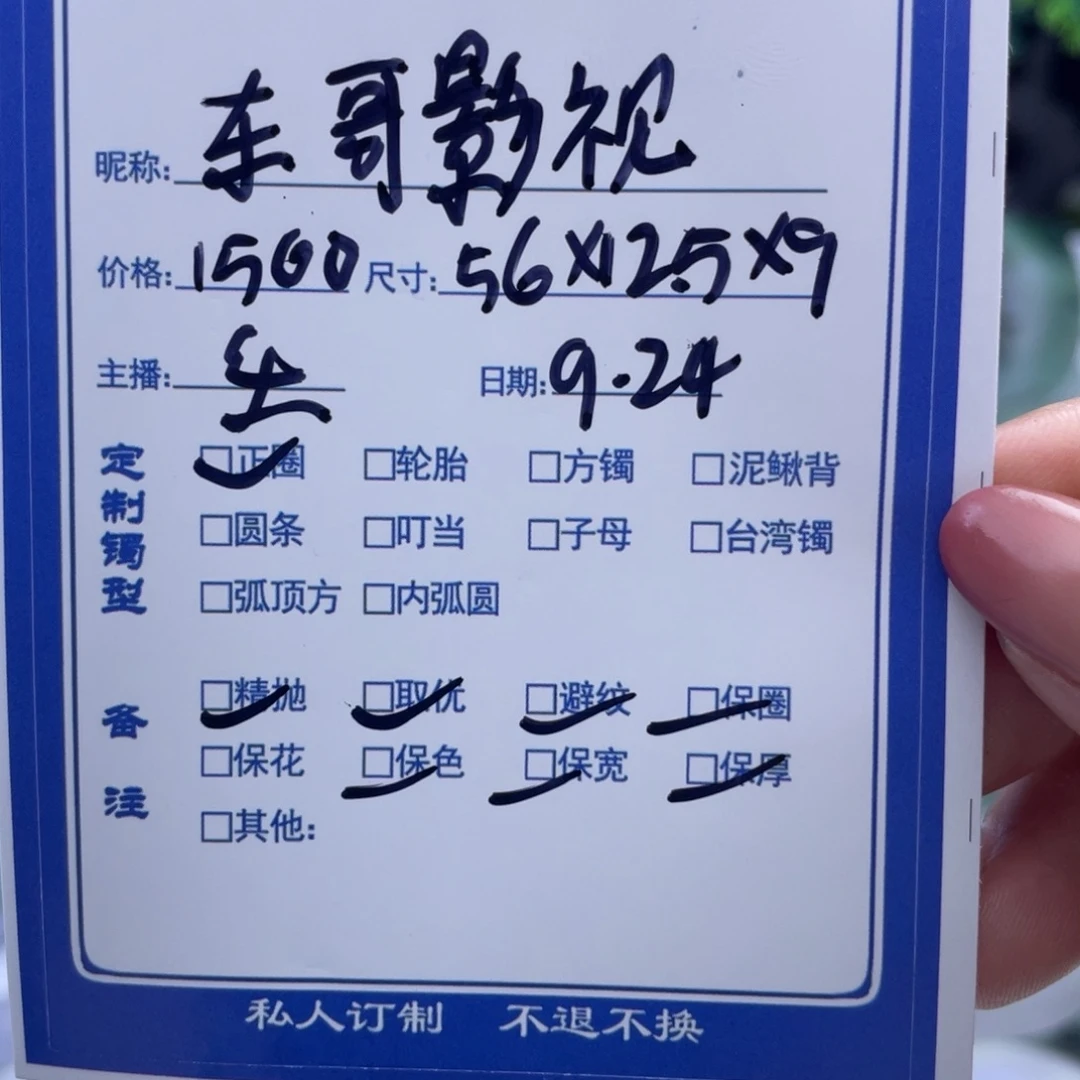 昵称:东哥影视
价格:1500 尺寸:56×12.5×9
主播: 日期:9.24
定制镯型
☑正圈 □轮胎 □方镯 □泥鳅背
□圆条 □叮当 □子母 □台湾镯
□弧顶方 □内弧圆
备注
☑精抛 ☑取优 ☑避纹 ☑保圈
□保花 ☑保色 ☑保宽 ☑保厚
□其他:
私人订制 不退不换